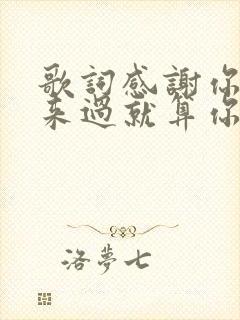 歌詞感謝你
来過就算你
洛夢七